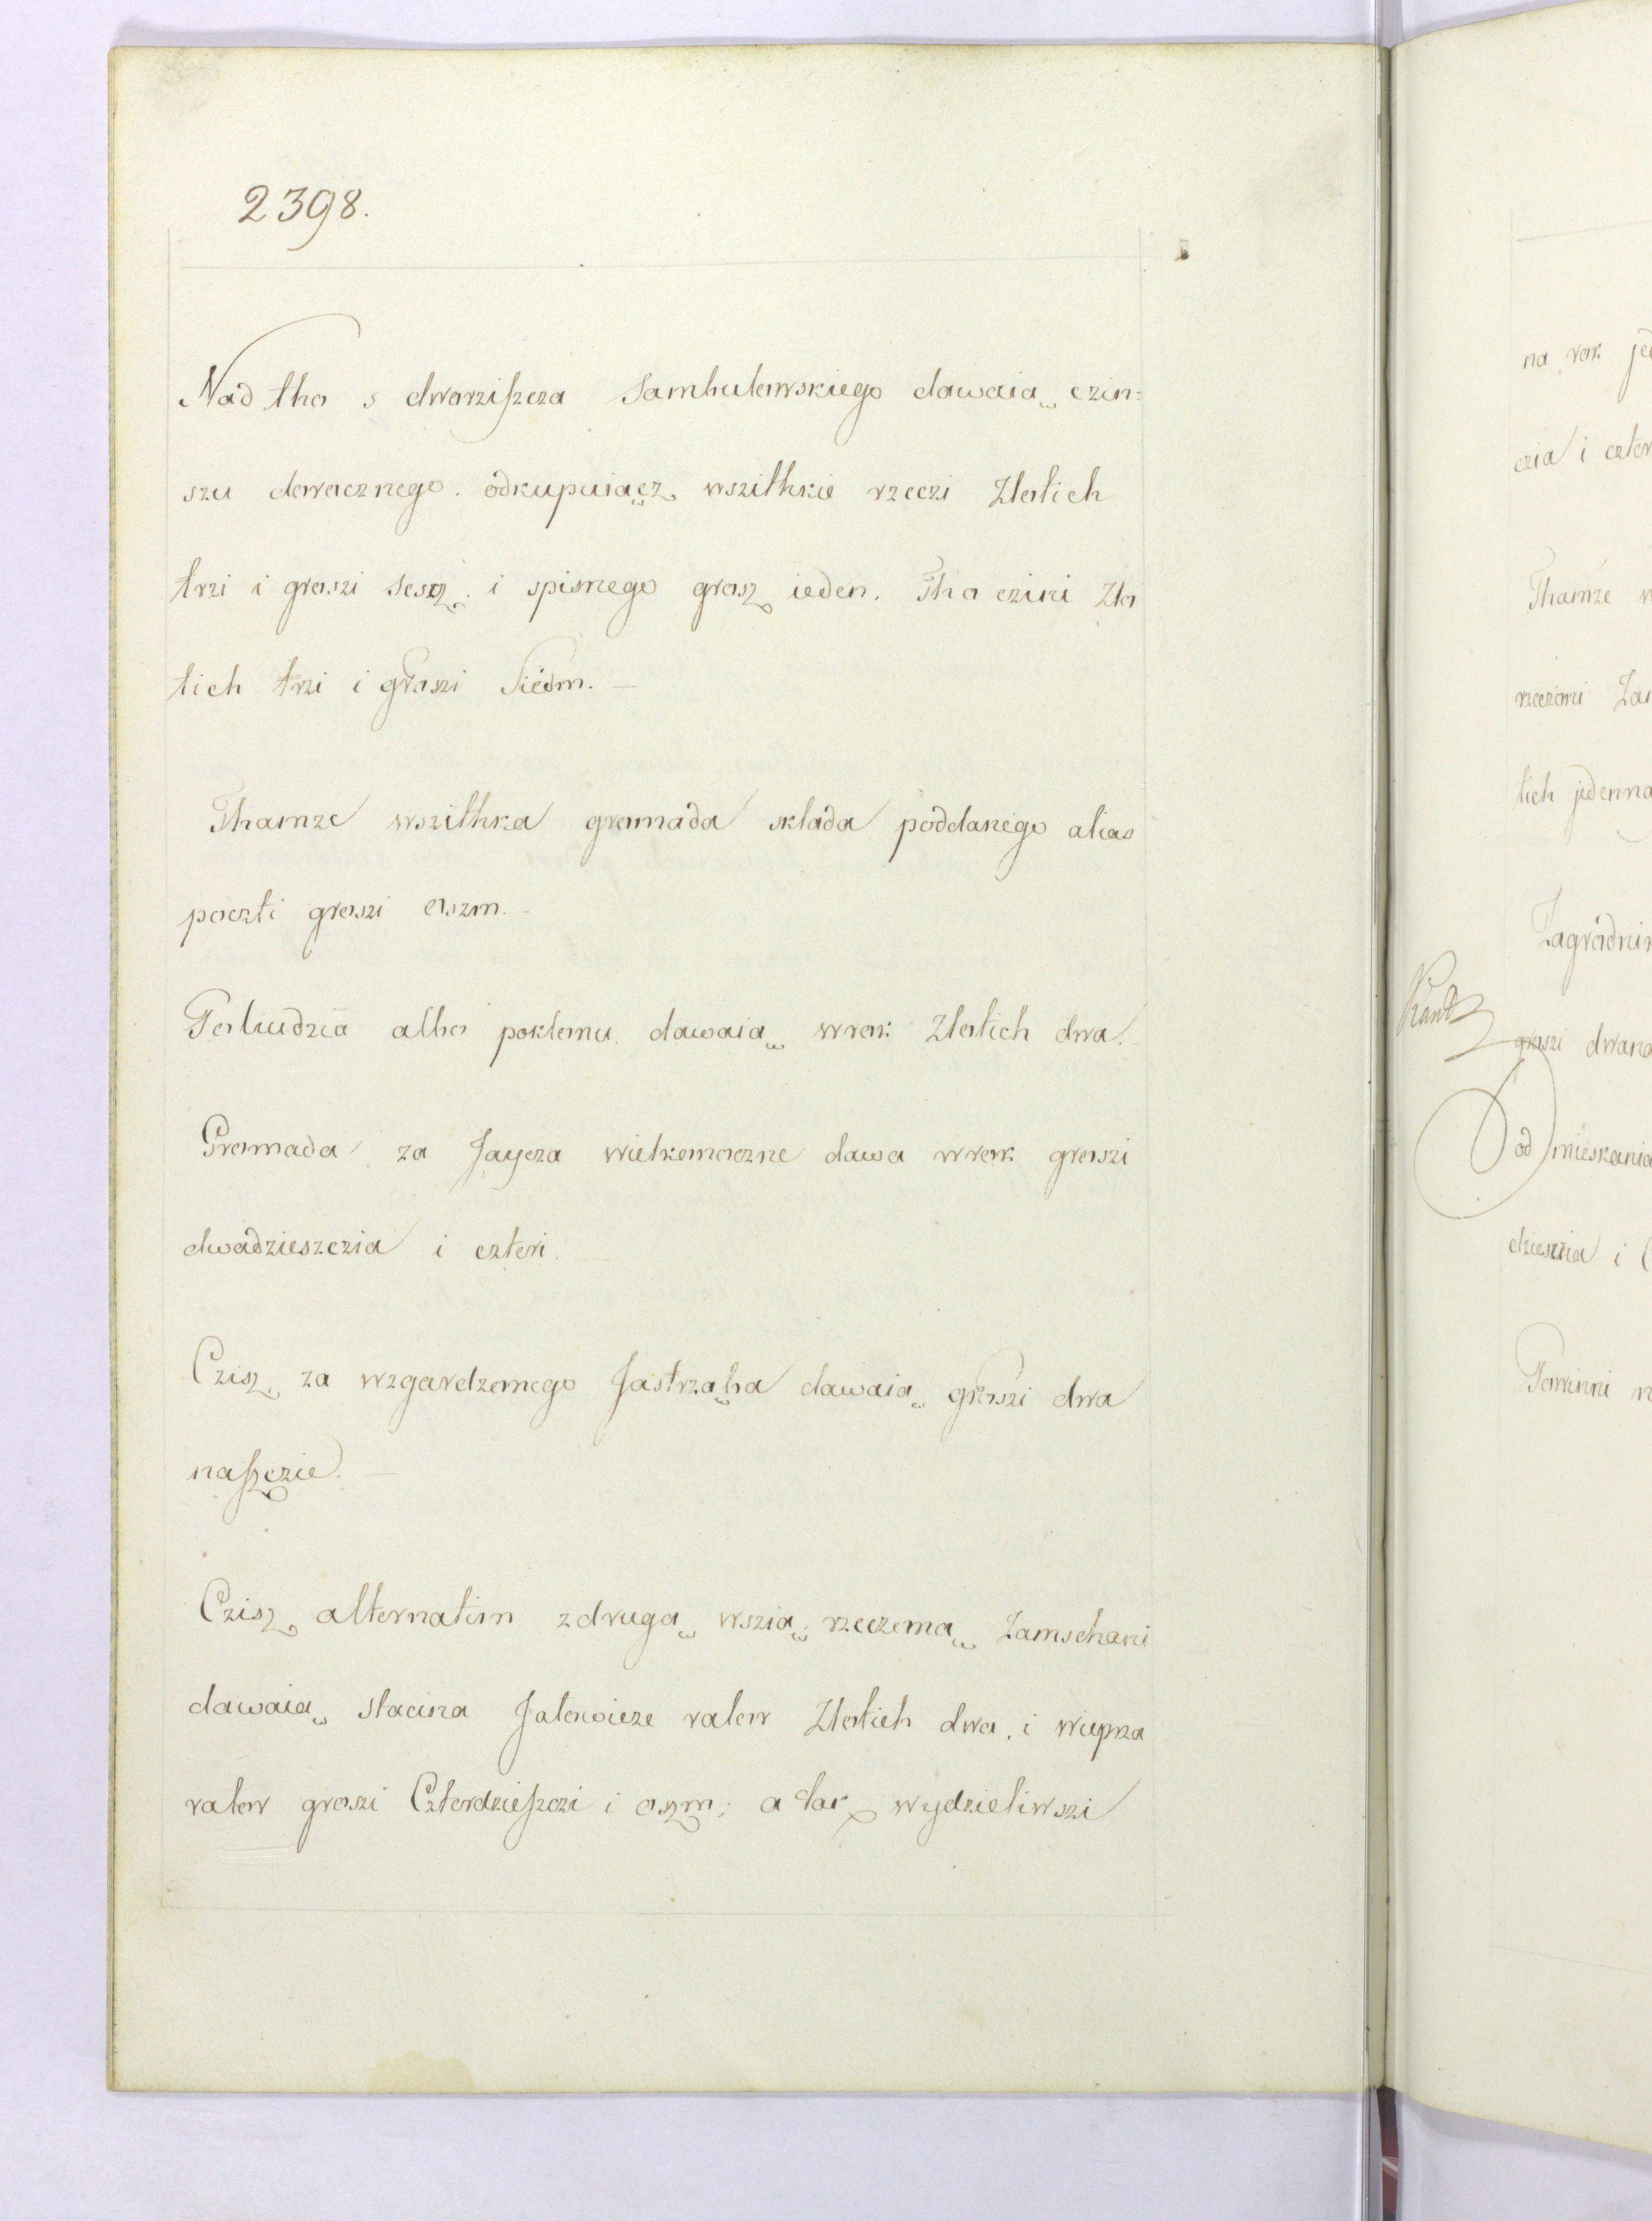 2398.
Nad tho s dworziszcza Sambulowskiego dawaią czin=
szu dorocznego. odkupuiącz wszithkie rzeczi Złotich
trzi i groszi sescz. i spisnego grosz ieden. Tho czini Zło
tich trzi i groszi Siedm. —
Thamze wszithka gromada składa poddanego alias
poczti groszi oszm. —
Poliudzia albo poklonu. dawaią wrok Złotich dwa. —
Gromada za Jaycza wielkonoczne dawa wrok groszi
dwadzieszczia i czteri. —
Czisz za wzgardzonego Jastrząba dawaią groszi dwa
naszczie. —
Czisz alternatim zdrugą wszią rzeczoną Zamschani
dawaią staciną Jałowicze valor Złotich dwa. i wieprza
valor groszi Czterdzieszczi i oszm; a tak wydzieliwszi
na rok
czia i
Thamze
rzeczoni
tich jedenna
groszi dwana
od mieskania
dzieszczia i
Powinni